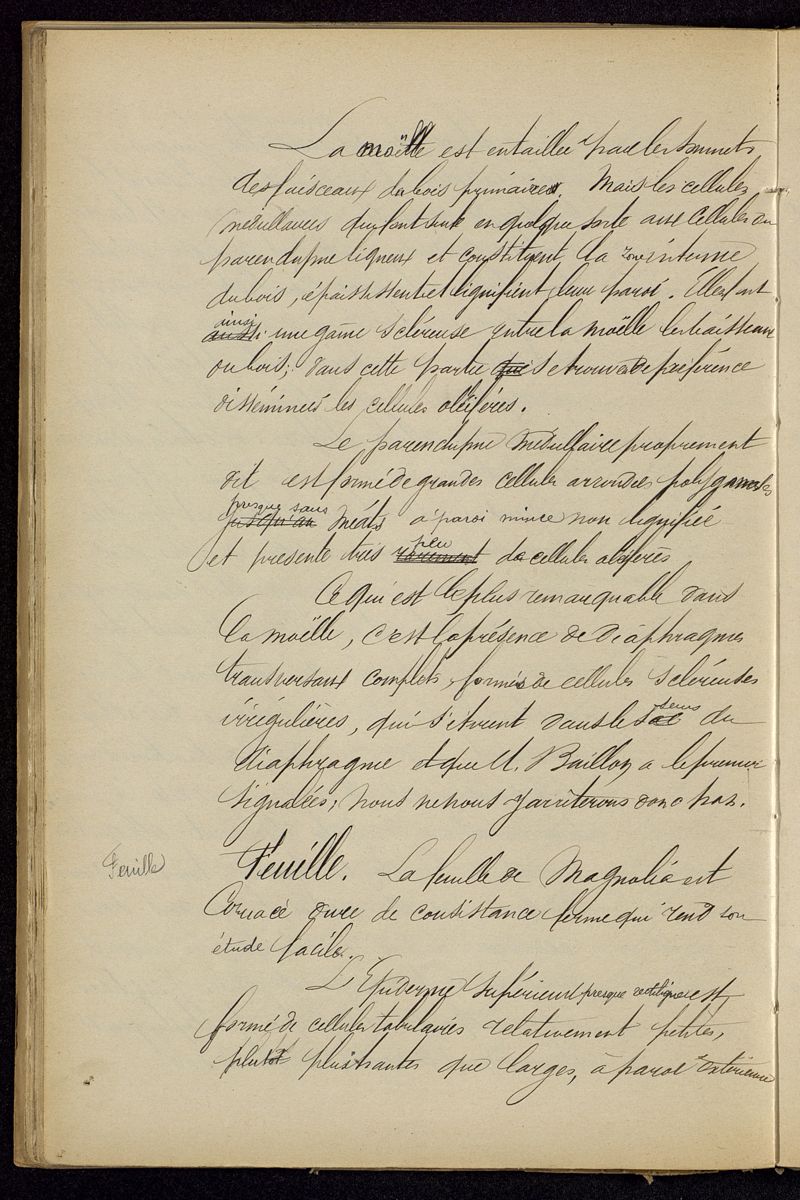 La moëlle est entaillée par les sommets
des faisceaux du bois primaires. Mais les cellules
médullaires qui font suite en quelque sorte aux cellules du
parenchyme ligneux et constituent la zone interne
du bois, épaississent et lignifient leur paroi. Elles font
ainsi
aussi une gaîne scléreuse entre la moëlle les faisceaux
du bois; dans cette partie que se trouvent de préférence
disséminées les cellules oléifères.
Le parenchyme médullaire proprement
dit est formé de grandes cellules arrondies polygonales
presque sans
jusqu'au méats à paroi mince non lignifiée
peu
et présente très rarement de cellules oléifères
Ce qui est le plus remarquable dans
la moëlle, c'est la présence de diaphragmes
transversaux complets, formés de cellules scléreuses
sens
irrégulières, qui s'étirent dans le sac du
diaphragme et que M. Baillon a le premier
signalés; nous ne nous y arrêterons donc pas.
Feuille
Feuille. La feuille de Magnolia est
Coriacé dure de consistance ferme qui rend son
étude facile.
L'Epiderme supérieur presque rectiligne est
formé de cellules tabulaires relativement petites,
plutôt plus hautes que larges, à paroi extérieure